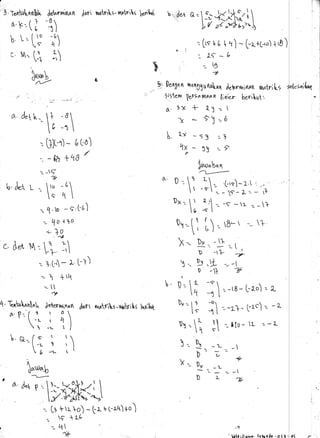 3. Tentukanlah determinan dari matriks-matriks berikut
a. K = ( 7 -8
6 -9 )
b. L = ( 10 -6
5 4 )
c. M = ( 3 2
-7 -1 )
Jawab
a. det k = | 7 -8
6 -9 |
= (7)(-9) - 6(-8)
= -63 + 48
= -15
b. det L = | 10 -6
5 4 |
= 4·10 - 5·(-6)
= 40 + 30
= 70
c. det M = | 3 2
-7 -1 |
= 3·(-1) - 2(-7)
= 3 + 14
= 11
4. Tentukanlah determinan dari matriks-matriks berikut
a. P =
b. Q =
Jawab
a. det P =
= (3 + 12 + 0) - (-2 + (-24) + 0)
= 15 + 26
= 41
b. det Q =
= (15 + 6 + 4) - (-2 + (-10) + 18)
= 25 - 6
= 19
5. Dengan menggunakan determinan matriks selesaikan
sistem persamaan linier berikut:
a. 3x + 2y = 1
x - 5y = 6
b. 2x - 5y = 3
4x - 9y = 5
Jawaban
a. D = | 3 2
1 -5 | = (-15) - 2·1
= -15 - 2 = -17
Dx = | 1 2
6 -5 | = -5 - 12 = -17
Dy = | 3 1
1 6 | = 18 - 1 = 17
X = Dx / D = -17 / -17 = 1
y = Dy / D = 17 / -17 = -1
b. D = | 2 -5
4 -9 | = -18 - (-20) = 2
Dx = | 3 -5
5 -9 | = -27 - (-25) = -2
Dy = | 2 3
4 5 | = 10 - 12 = -2
y = Dy / D = -2 / 2 = -1
X = Dx / D = -2 / 2 = -1